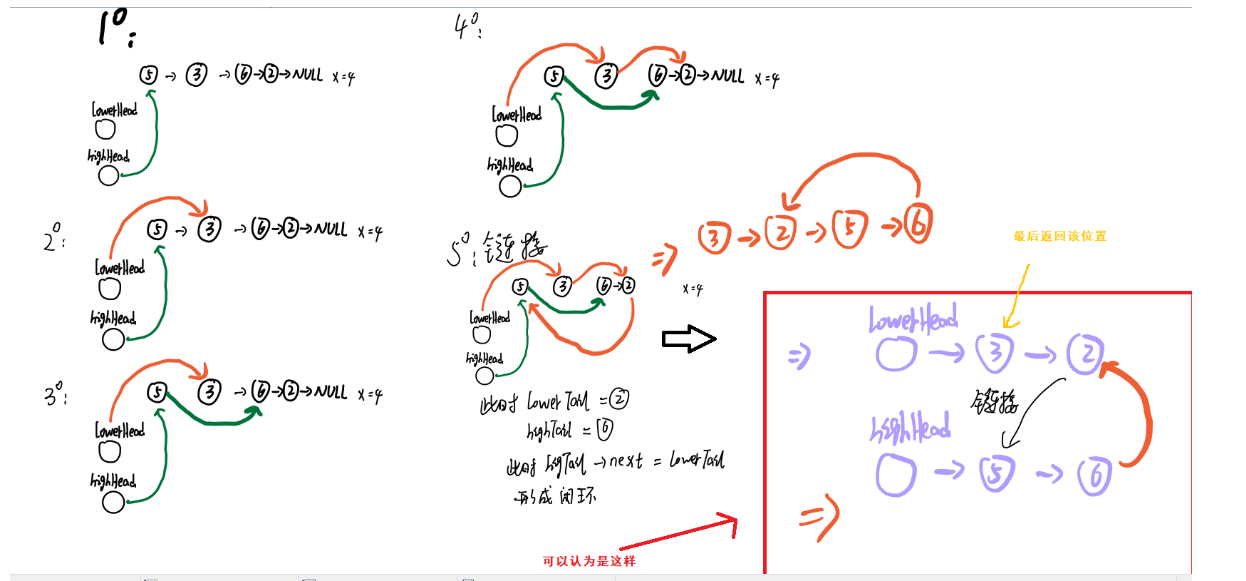 1°:
5 → 3 → 6 → 2 → NULL x=4
LowerHead
highHead
2°:
5 → 3 → 6 → 2 → NULL x=4
LowerHead
highHead
3°:
5 → 3 → 6 → 2 → NULL x=4
LowerHead
highHead
4°:
5 3 6 → 2 → NULL x=4
LowerHead
highHead
5°: 链接
5 3 6 → 2 x=4
LowerHead
highHead
此时 LowerTail = 2
highTail = 6
此时 higTail → next = LowerTail
形成闭环
可以认为是这样
⇒ 3 → 2 → 5 → 6
最后返回该位置
LowerHead
⇒ → 3 → 2
链接
highHead
→ 5 → 6
⇒